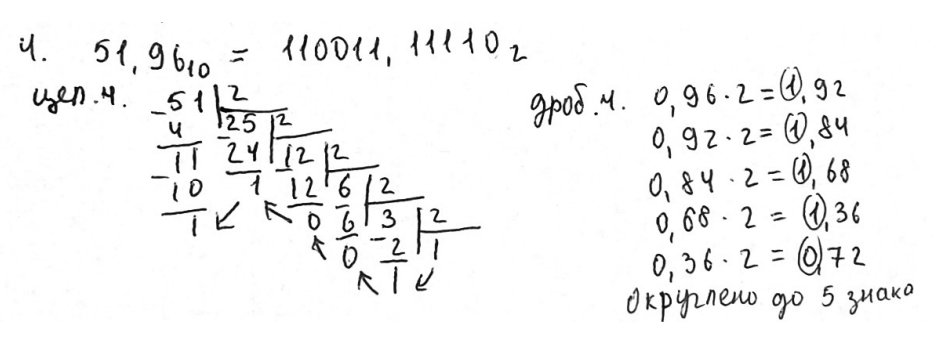 4. 51,96₁₀ = 110011,11110₂
цел.ч.
51 | 2
4 25 | 2
11 24 12 | 2
10 1 12 6 | 2
1 0 6 3 | 2
0 2 1
1
дроб.ч. 0,96·2=1,92
0,92·2=1,84
0,84·2=1,68
0,68·2=1,36
0,36·2=0,72
Округлено до 5 знака